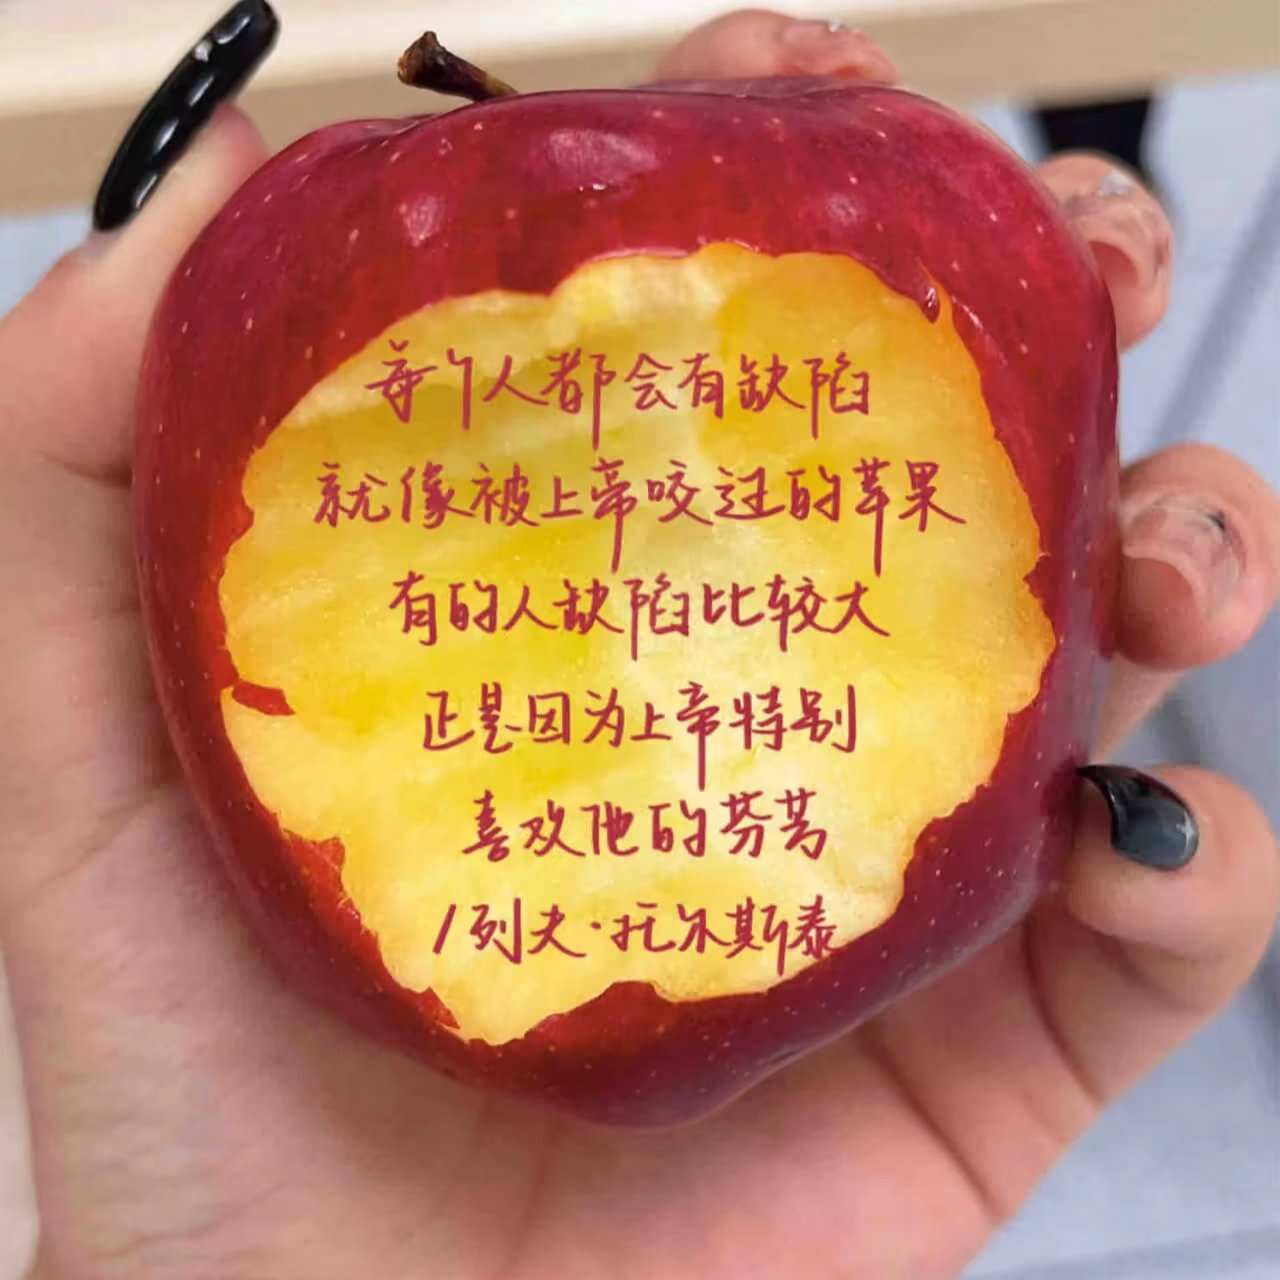 每个人都会有缺陷
就像被上帝咬过的苹果
有的人缺陷比较大
正是因为上帝特别
喜欢他的芬芳
/列夫·托尔斯泰